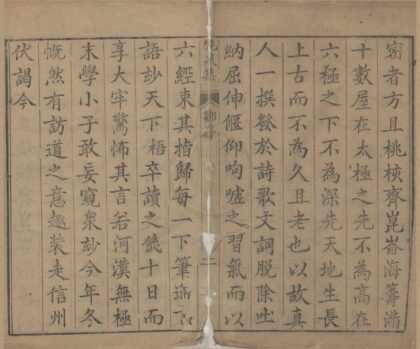 密者方且桃核齊崑崙海籌滿
十數屋在太極之先不為高在
六極之下不為深先天地生長
上古而不為久且老也以故真
人一撰發於詩歌文詞脫除吐
納屈伸偃仰呴噓之習氣而以
鄭序
二
六經束其指歸每一下筆
語玅天下梧卒讀之饒十日而
享大牢驚怖其言若河漢無極
末學小子敢妄窺眾玅今年冬
慨然有訪道之意趣裝走信州
伏謁今